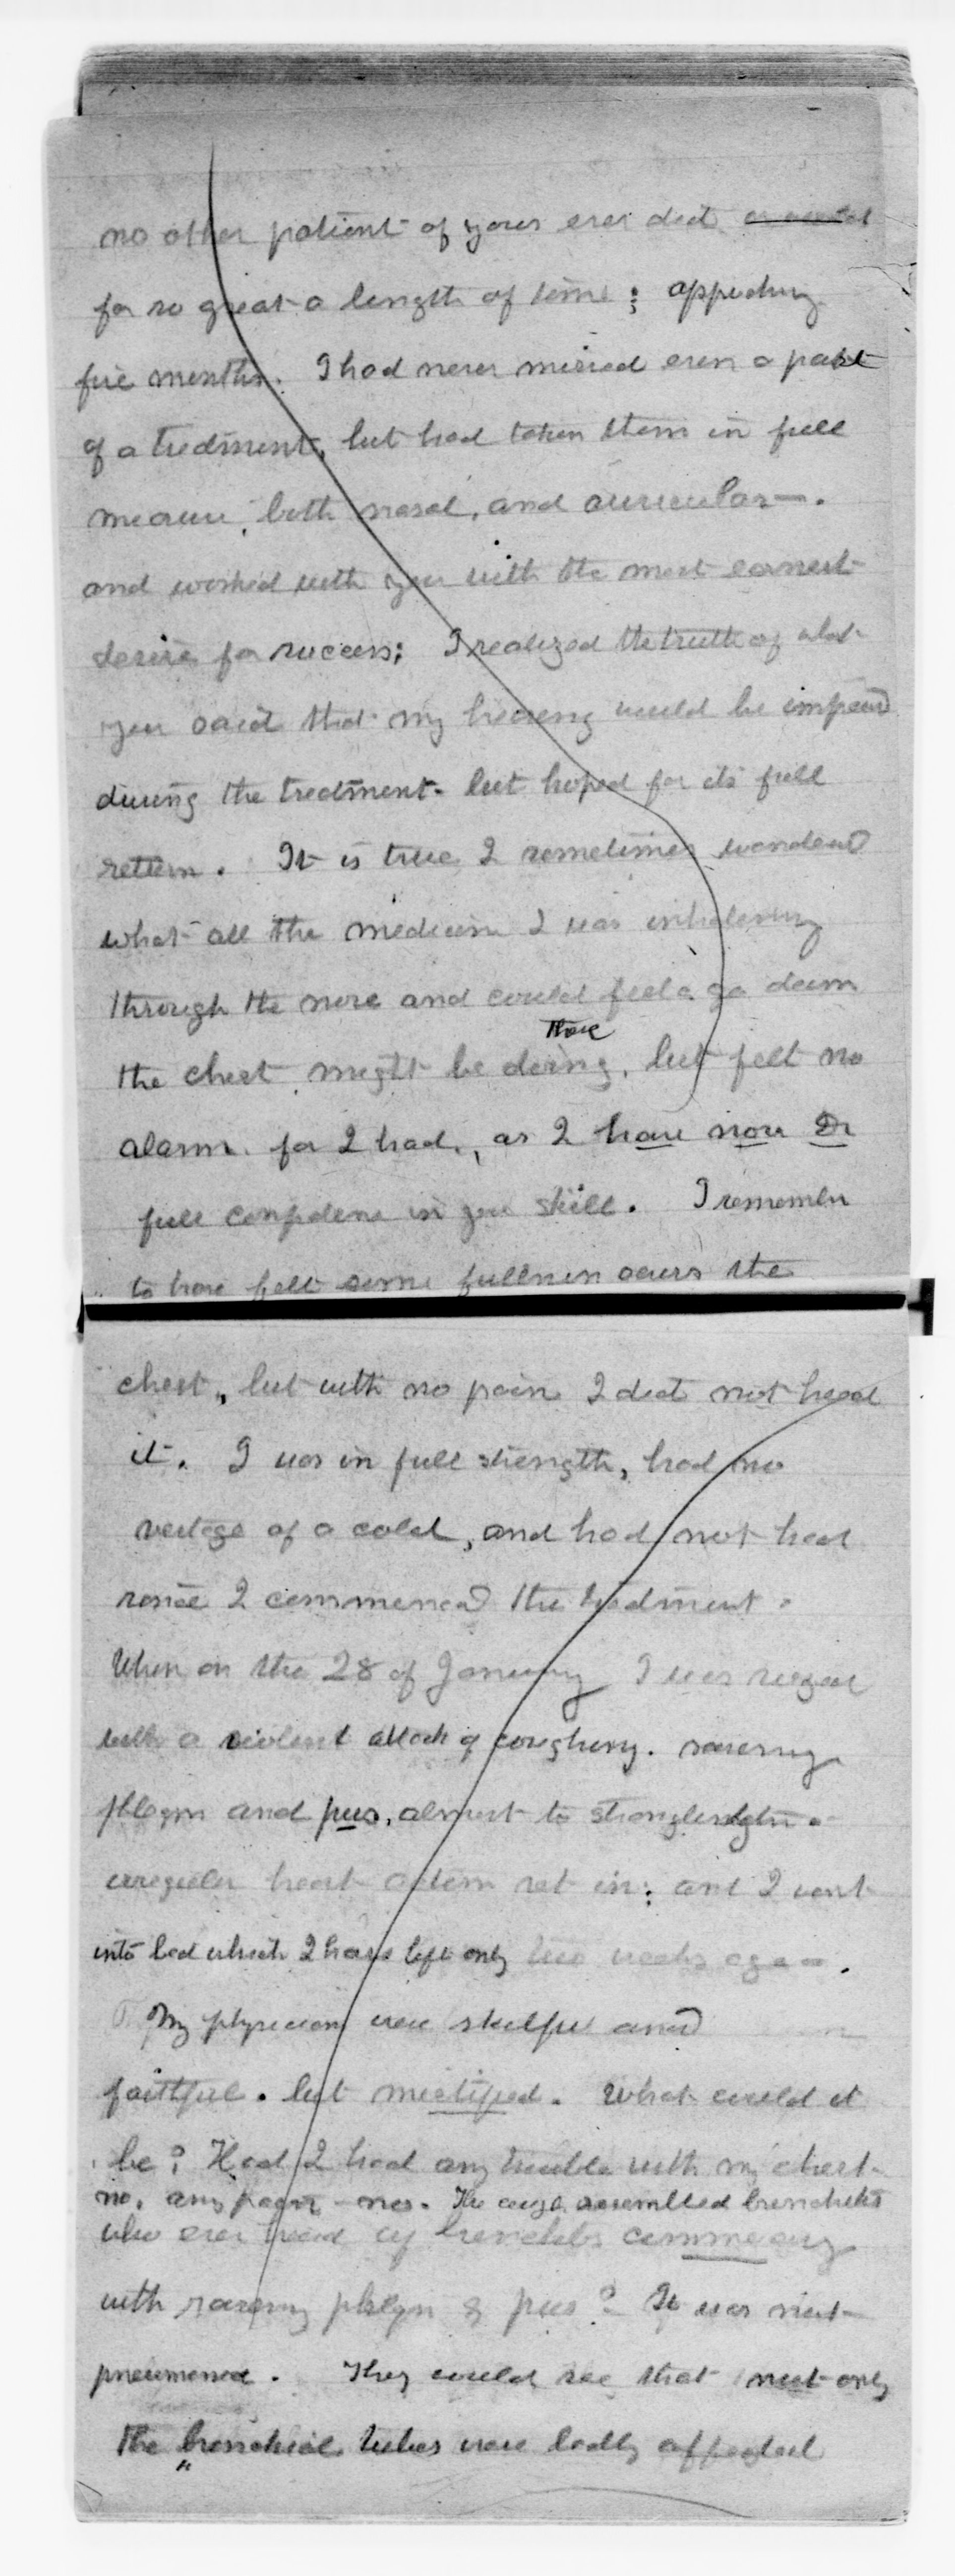 no other patient of yours ever did
for so great a length of time;
five months. I had never missed even a part
of a treatment, but had taken them in full
measure, both nasal, and auricular—.
and worked with you with the most earnest
desire for success; I realized the truth of what
you said that my hearing would be impaired
during the treatment. but hoped for its full
return. It is true I sometimes wondered
what all the medicine I was inhaling
through the nose and could feel go down
the chest might be doing there, but felt no
alarm for I had, as I have now Dr
full confidence in your skill. I remember
to have felt some fullness across the
chest, but with no pain I did not heed
it. I was in full strength, had no
vestige of a cold, and had not had
since I commenced the treatment.
When on the 28 of January I was seized
with a violent attack of coughing. raising
phlegm and pus, almost to
irregular heart action set in; and I went
into bed which I have left only two weeks ago.
My physicians were skilful and
faithful. but mistified. What could it
be? Had I had any trouble with my chest
no, any pain no. The cough resembled bronchitis
who ever heard of bronchitis commencing
with raising phlegm & pus? It was not
pneumonia. They could see that not only
the bronchial tubes were badly affected